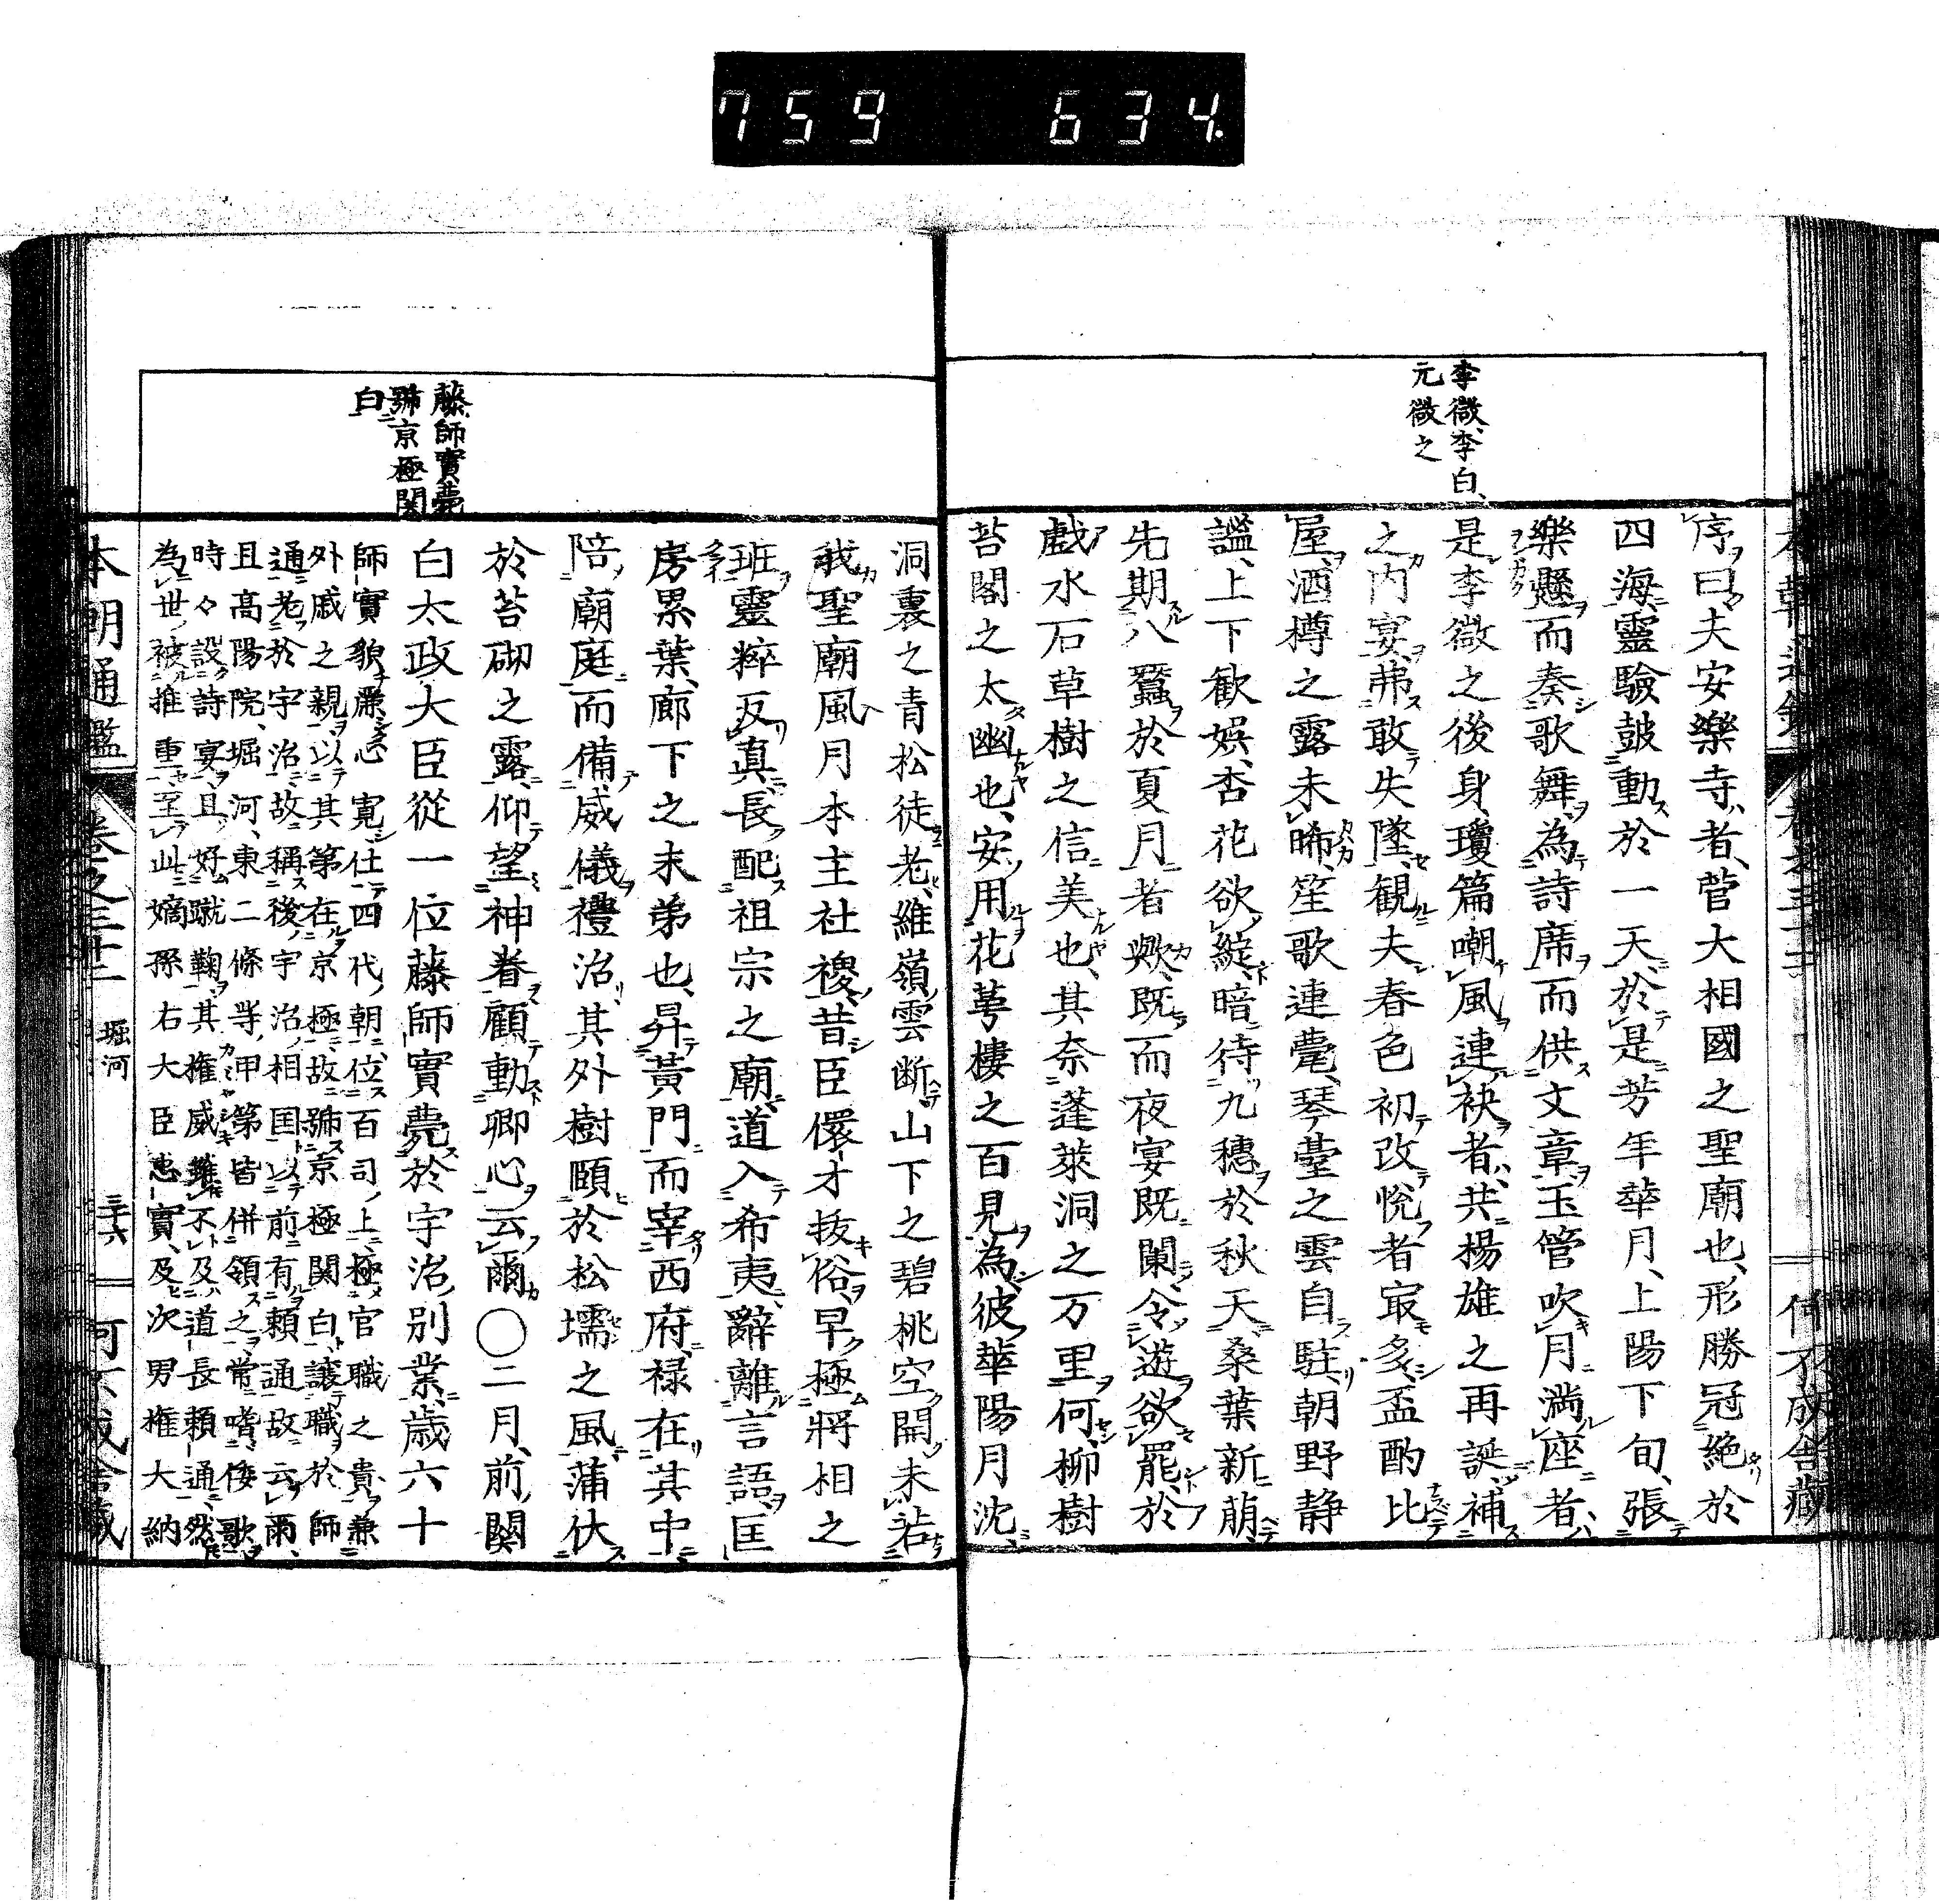 759 634.
李徴、李白、
元徴之
序曰、夫安樂寺者、菅大相國之聖廟也、形勝冠絶於
四海、靈驗鼓動於一天、於是芳年華月、上陽下旬、張
樂懸而奏歌舞、為詩席而供文章、玉管吹月、満座者、
是李徴之後身、瓊篇嘲風、連袂者、共楊雄之再誕、補
之内宴、弗敢失墜、観夫春色初改、悅者冣多、盃酌比
屋、酒樽之露未晞、笙歌連甍、琴臺之雲自駐、朝野静
謐、上下歓娯、杏花欲綻、暗待九穗於秋天、桑葉新萠、
先期八蠶於夏月者歟、既而夜宴既闌、令遊欲罷、於
戯水石草樹之信美也、其奈蓬萊洞之万里何、柳樹
苔閣之太幽也、安用花萼樓之百見、為彼華陽月沈、
藤師實薨
號京極関
白
洞裏之青松徒老、維嶺雲断、山下之碧桃空開、未若
我聖廟風月本主社稷、昔臣儇才抜俗、早極將相之
班、靈粹反真、長配祖宗之廟、道入希夷、辭離言語、匡
房累葉、廊下之末弟也、昇黃門而宰西府、禄在其中、
陪廟庭而備威儀、禮治其外、樹頤於松壖之風、蒲伏
於苔砌之露、仰望神眷、顧動卿心、云爾○二月、前関
白太政大臣從一位藤師實薨於宇治別業、歳六十
師實貌麗、心寛、仕四代朝、位百司上、極官職之貴、兼
外戚之親、以其第在京極、故號京極関白、譲職於師
通、老於宇治、故稱後宇治、相国以前有賴通、故云爾、
且高陽院、堀河、東二條等、甲第皆併領之、常嗜倭歌、
時々設詩宴、且好蹴鞠、其権威雖不及道長賴通、然
為世被推重、至此嫡孫右大臣忠實、及次男権大納
本朝通鑑 卷之三十二 堀河 三十六 何不成舎蔵